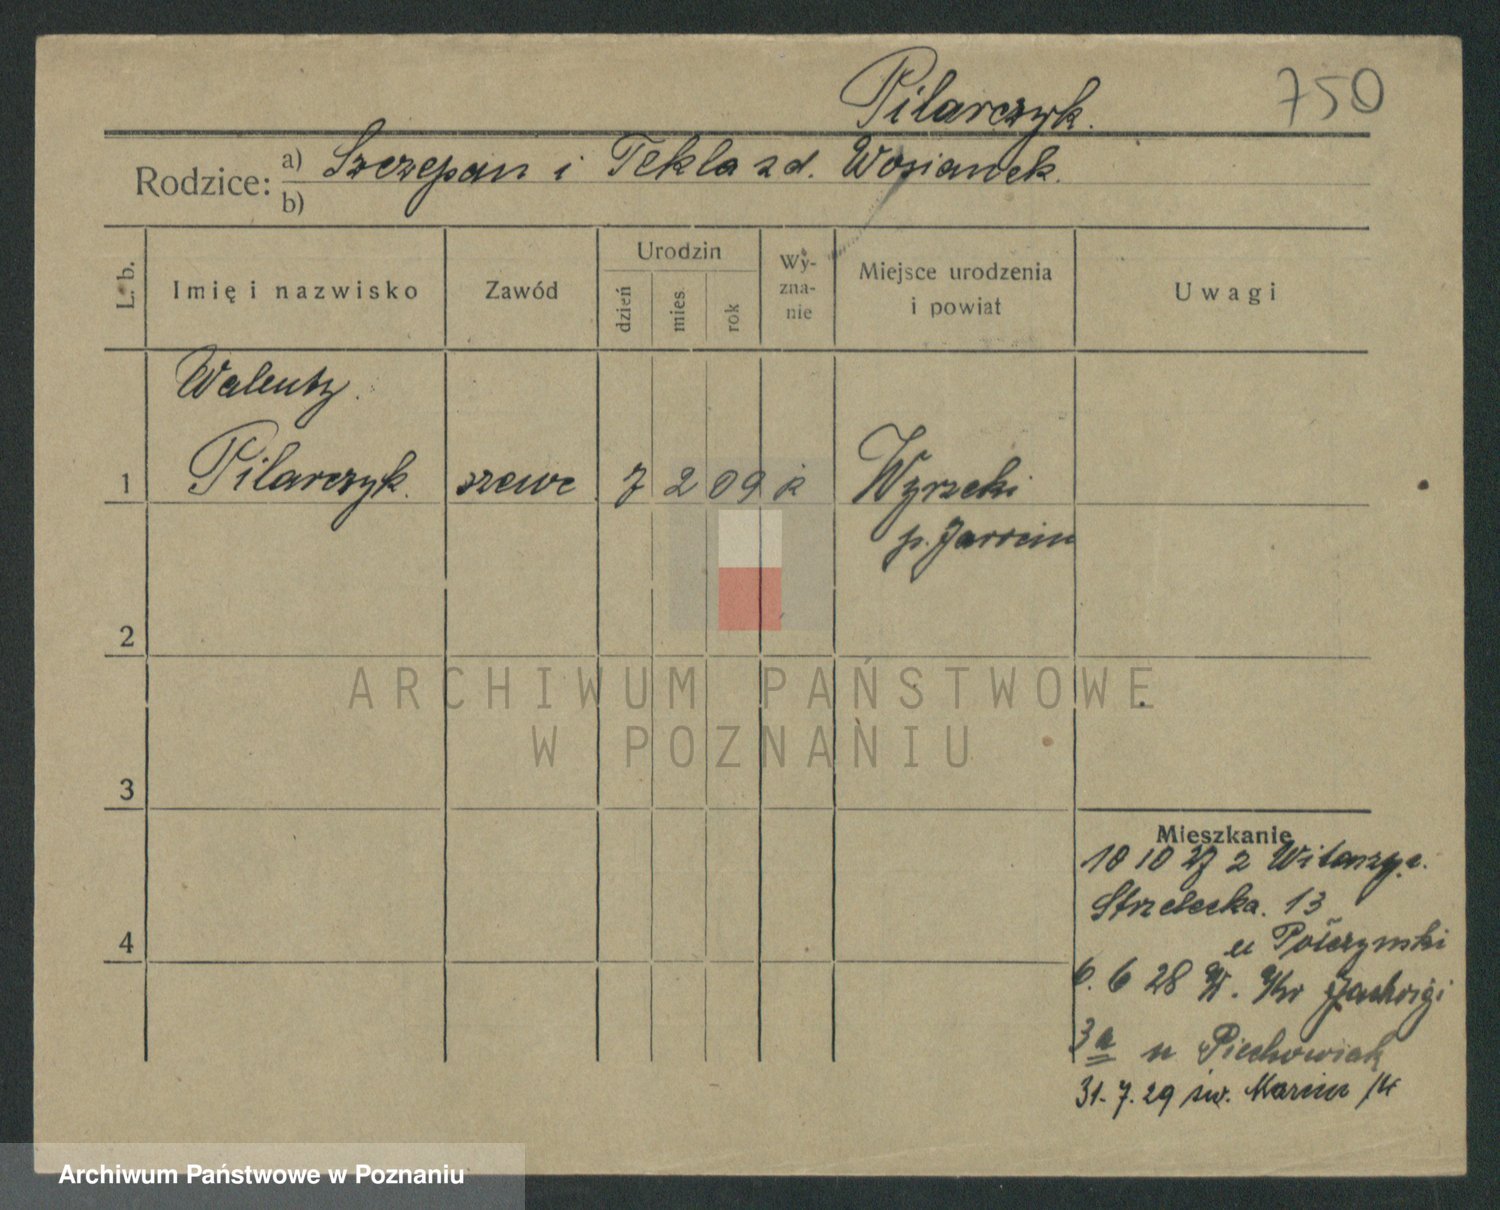 Pilarczyk.
750
Rodzice: a) Szczepan i Tekla z d. Wosianek.
b)
L. b.
Imię i nazwisko
Zawód
Urodzin
dzień
mies.
rok
Wy-
zna-
nie
Miejsce urodzenia
i powiat
Uwagi
Walenty.
1 Pilarczyk. szewc 7 2 09 k
p. Jarocin
2
ARCHIWUM PAŃSTWOWE
W POZNANIU
3
Mieszkanie
10 10 27 z Witaszyc.
Strzelecka. 13
4
6. 6 28 Jadwigi
3a u Piechowiak
31. 7. 29 św. Marcin 14
Archiwum Państwowe w Poznaniu